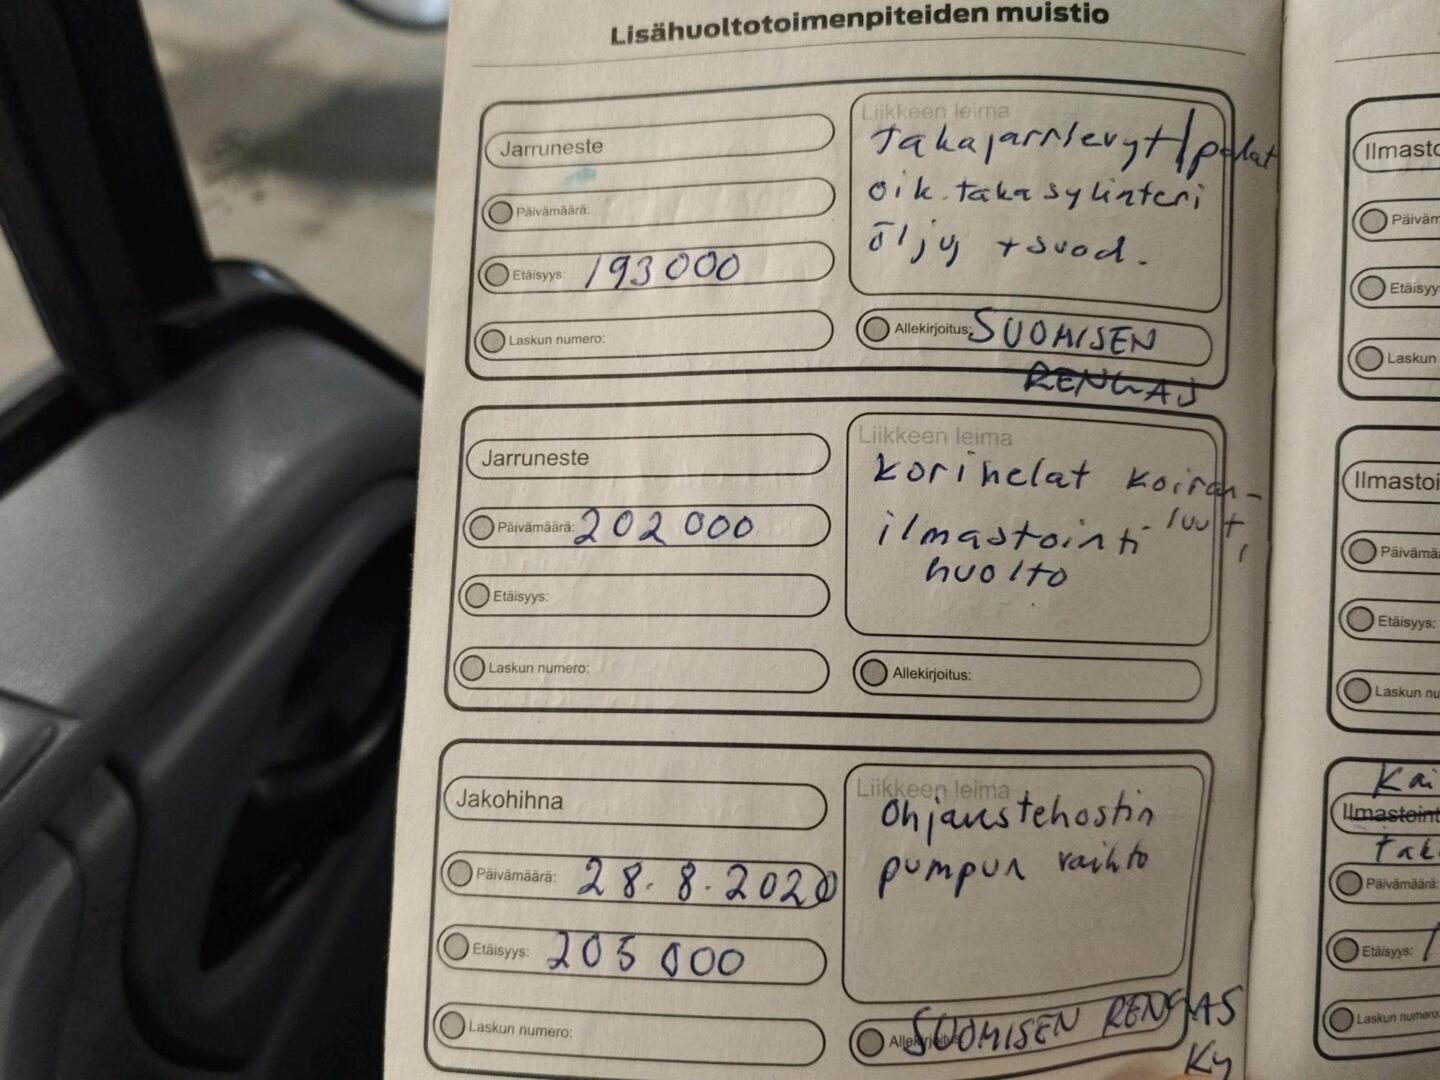 Lisähuoltotoimenpiteiden muistio
Jarruneste
Päivämäärä:
Etäisyys: 193000
Laskun numero:
Liikkeen leima
Takajarrlevyt/palat
oik. takasylinteri
öljy + suod.
Allekirjoitus: SUOMISEN
RENGAS
Jarruneste
Päivämäärä: 202 000
Etäisyys:
Laskun numero:
Liikkeen leima
korihelat koiran-
luut,
ilmastointi
huolto
Allekirjoitus:
Jakohihna
Päivämäärä: 28.8.2020
Etäisyys: 205 000
Laskun numero:
Liikkeen leima
Ohjaustehostin
pumpun vaihto
Allekirjoitus: SUOMISEN RENGAS
Ky
Ilmasto
Päiväm
Etäisyy
Laskun
Ilmastoi
Päivämä
Etäisyys:
Laskun nu
Kai
Ilmastoint
tak
Päivämäärä:
Etäisyys: 1
Laskun numero: